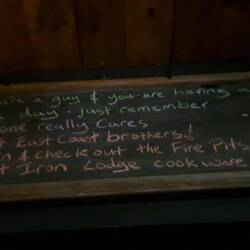 a guy & you are having a
day : just remember
one really cares
East Coast brothers!
& check out the Fire Pits
Iron Lodge cookware